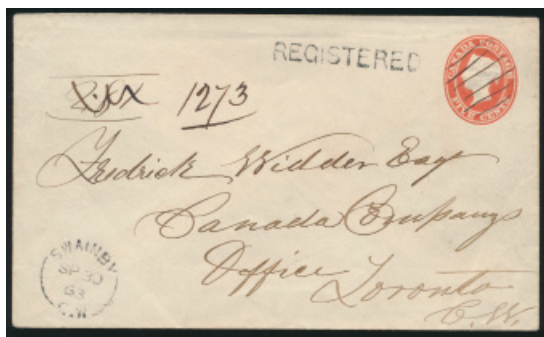 REGISTERED
CANADA POSTAGE
FIVE CENTS
1273
Fredrick Widder Esqr
Canada Companys
Office Toronto
C.W.
SP 30
63
C.W